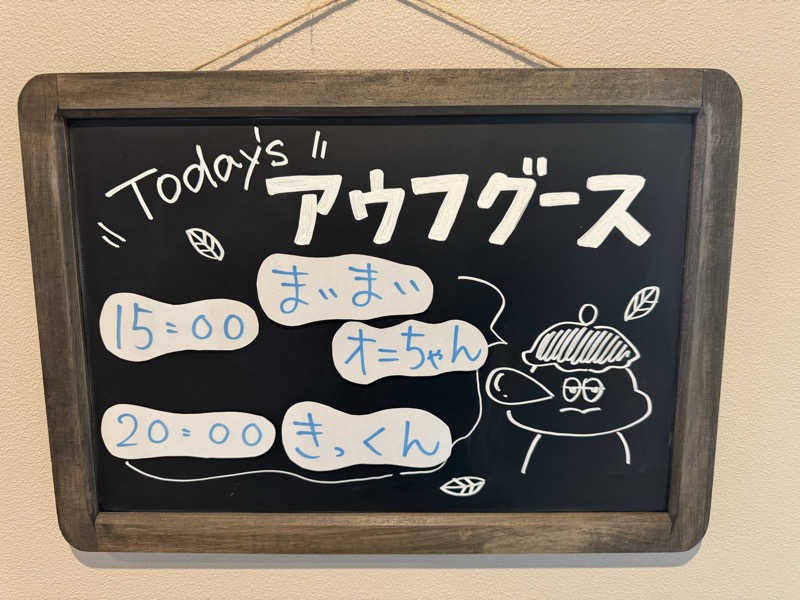 "Today's"
アウフグース
15:00 まいまい
オニちゃん
20:00 きっくん